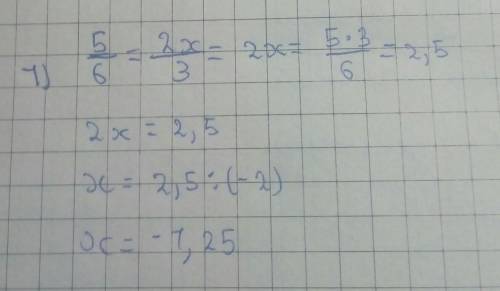 1) 5/6 = 2x/3 = 2x = 5·3/6 = 2,5
2x = 2,5
x = 2,5 : (-2)
x = -1,25